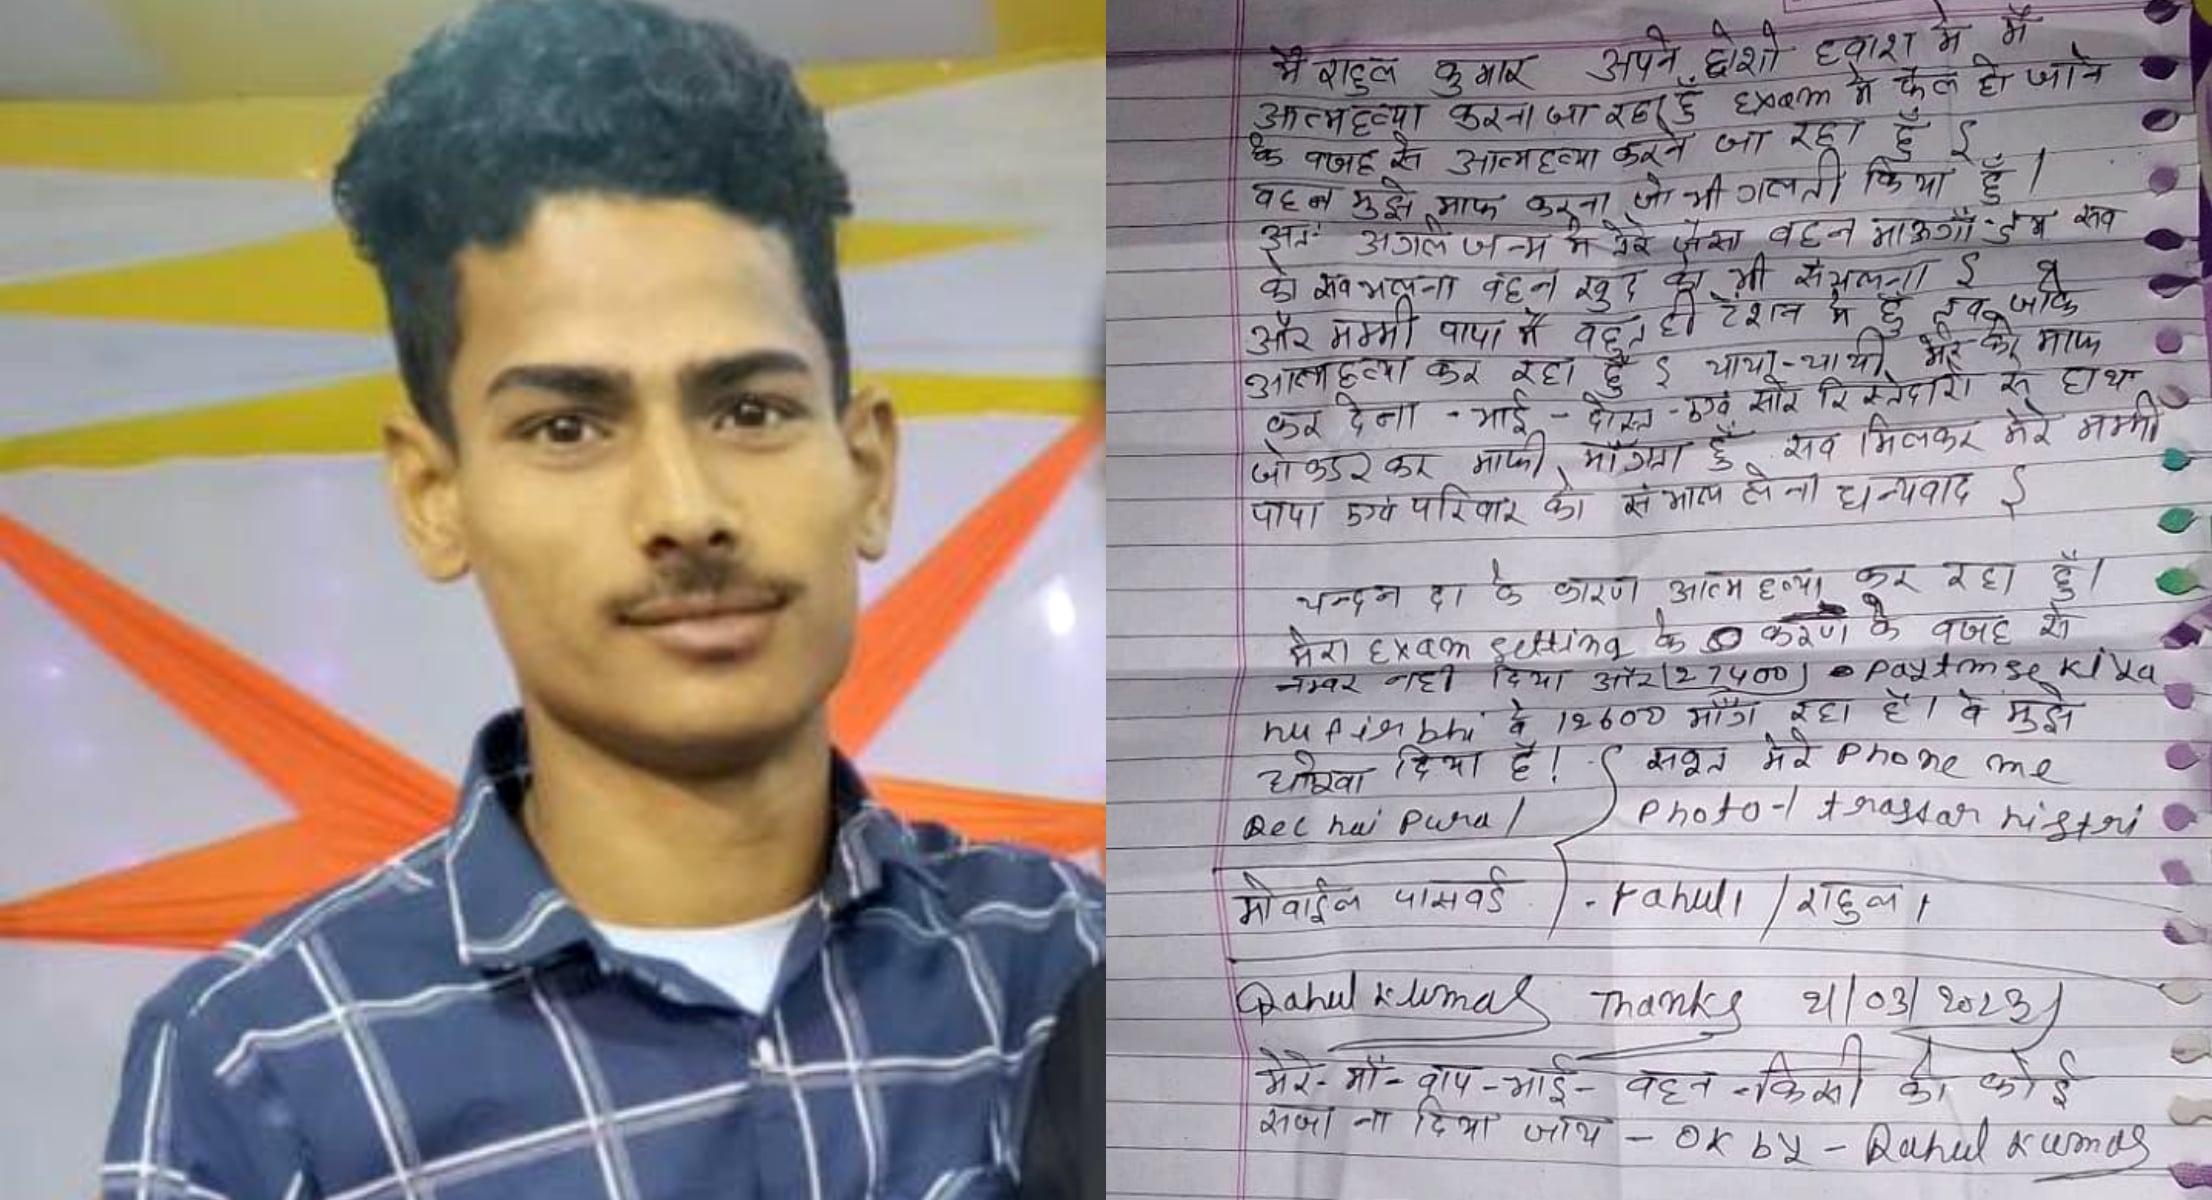 मै राहुल कुमार अपने होशो हवाश मे मैं
आत्महत्या करना जा रहा हूँ Exam मे फेल हो जाने
के वजह से आत्महत्या करने जा रहा हूँ
वहन मुझे माफ करना जो भी गलती किया हूँ।
अतः अगले जन्म मे तेरे जैसा वहन माऊगाँ सव
को वहन खुद को भी
और मम्मी पापा मैं वहुत ही टेंशन मे हूँ
आत्महत्या कर रहा हूँ चाचा-चाची माफ
कर देना - भाई - दोस्त - एवं रिस्तेदारो से हाथ
कर माफी माँगता हूँ सव मिलकर मेरे मम्मी
पापा एवं परिवार को संभाल लेना धन्यवाद
चन्दन दा के कारण आत्महत्या कर रहा हूँ।
मेरा Exam setting के करण के वजह से
नम्वर नही दिया और (27400) paytm se kiya
hu fir bhi वे 12600 माँग रहा है। वे मुझे
धोखा दिया है! सवुत मेरे Phone me
photo-1
मोवाईल पासवर्ड - rahul1 / राहुल1
Rahul Kumar Thanks 21/03/2023
मेरे-माँ-वाप-भाई- वहन -किसी को कोई
सजा ना दिया जाय - OK by - Rahul Kumar